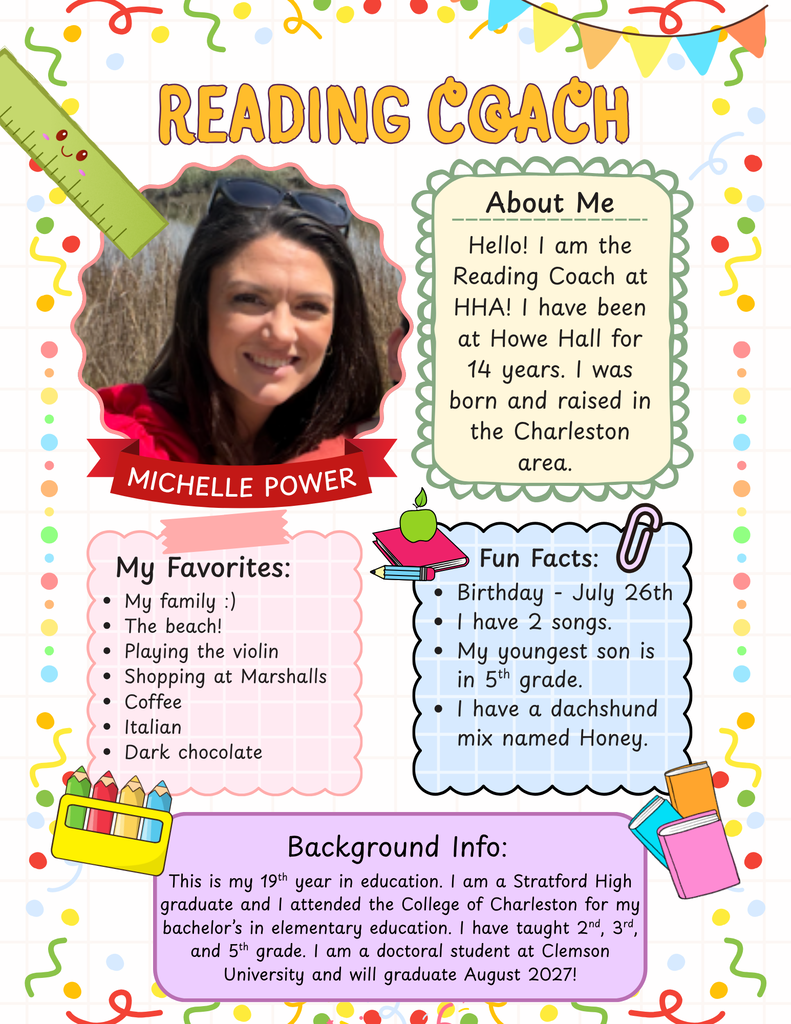 READING COACH
About Me
Hello! I am the
Reading Coach at
HHA! I have been
at Howe Hall for
14 years. I was
born and raised in
the Charleston
area.
MICHELLE POWER
My Favorites:
• My family :)
• The beach!
• Playing the violin
• Shopping at Marshalls
• Coffee
• Italian
• Dark chocolate
Fun Facts:
• Birthday - July 26th
• I have 2 songs.
• My youngest son is
in 5th grade.
• I have a dachshund
mix named Honey.
Background Info:
This is my 19th year in education. I am a Stratford High
graduate and I attended the College of Charleston for my
bachelor's in elementary education. I have taught 2nd, 3rd,
and 5th grade. I am a doctoral student at Clemson
University and will graduate August 2027!